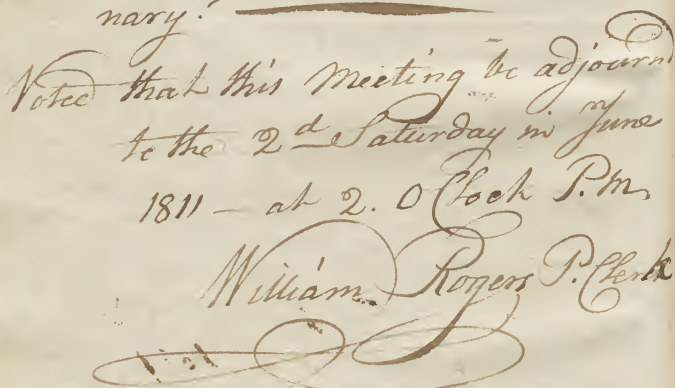 nary.
Voted that this Meeting be adjournd
to the 2d Saturday in June
1811 - at 2. O Clock P.M.
William Rogers P. Clerk